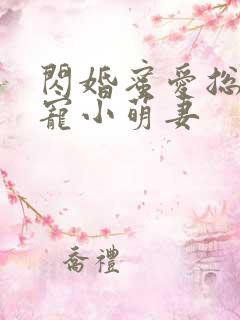 閃婚蜜愛总
寵小萌妻
喬禮